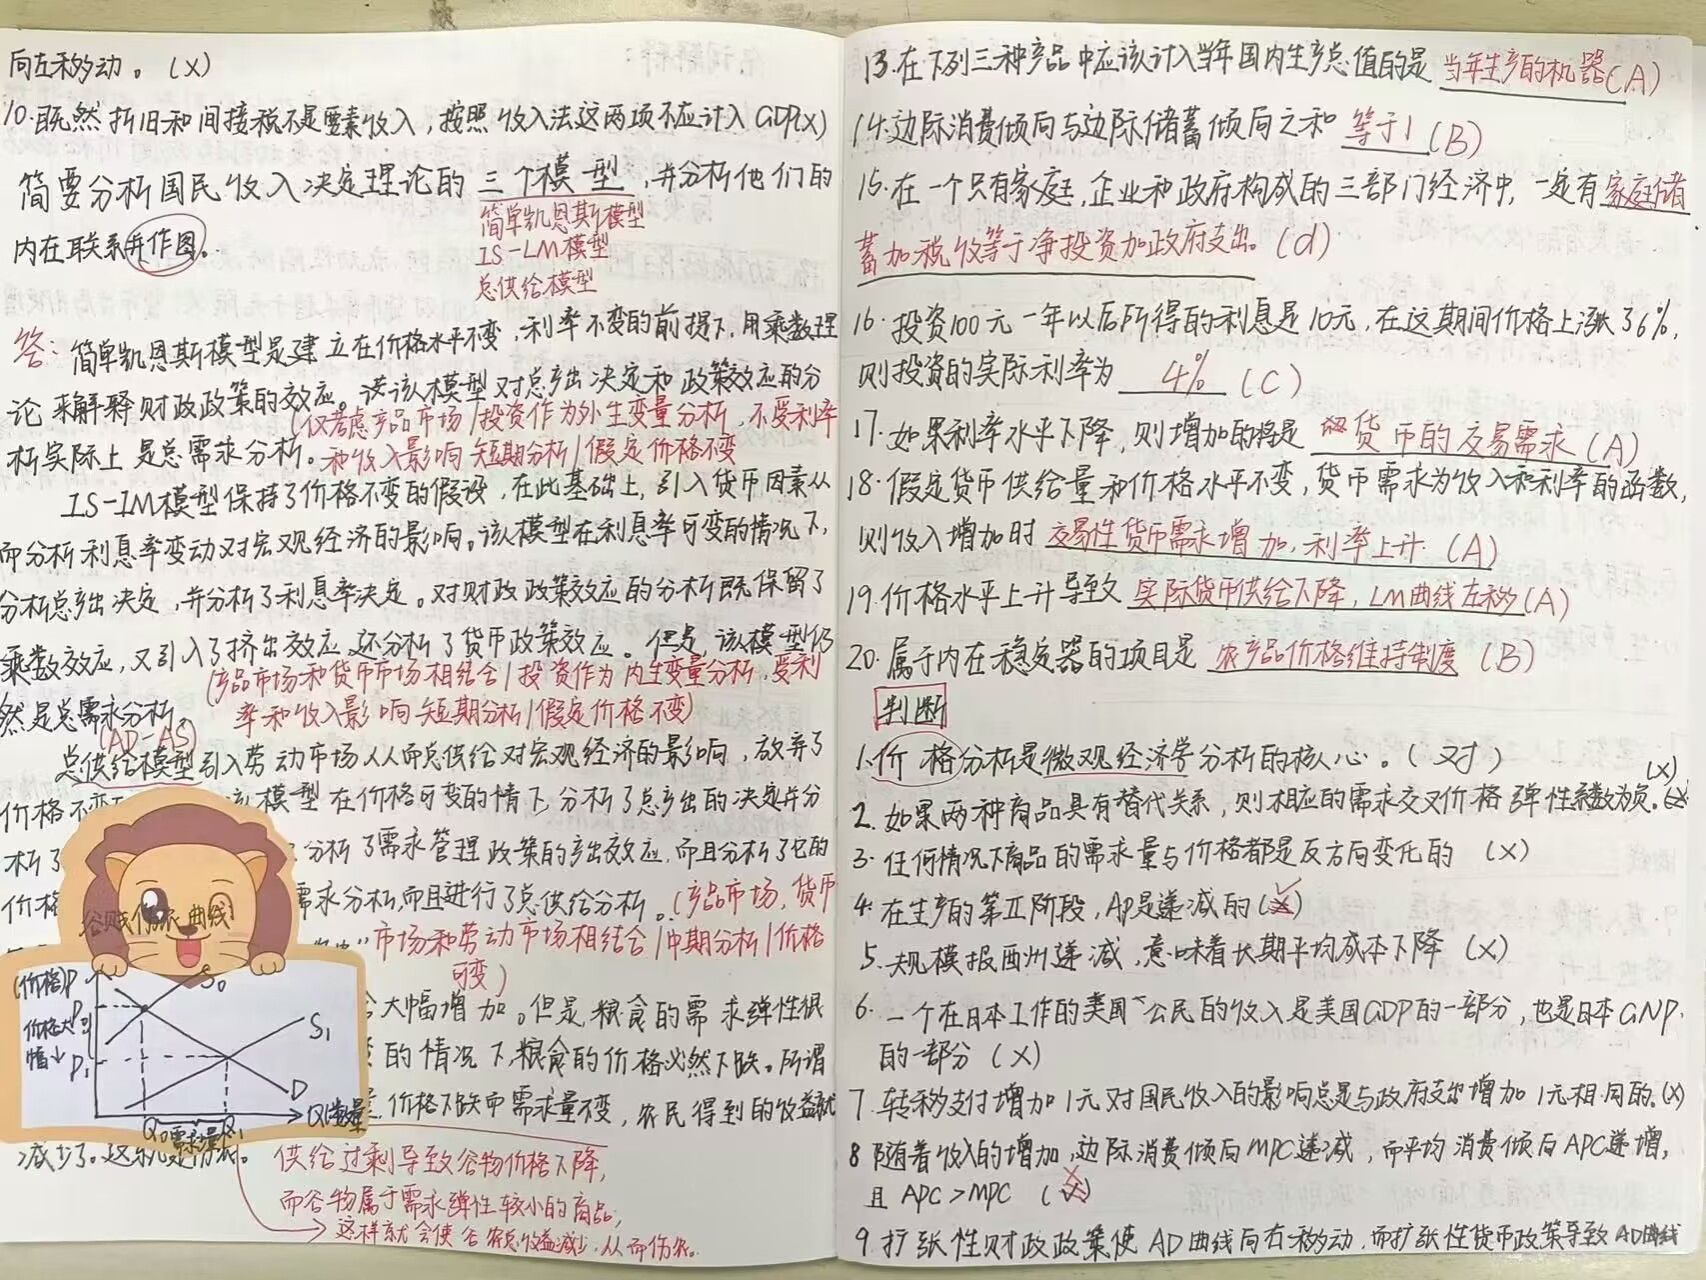 向左移动。(X)
10.既然折旧和间接税不是要素收入，按照收入法这两项不应计入GDP(X)
简要分析国民收入决定理论的三个模型，并分析他们的
内在联系并作图。
简单凯恩斯模型
IS-LM模型
总供给模型
答：简单凯恩斯模型是建立在价格水平不变，利率不变的前提下，用乘数理
论来解释财政政策的效应。该模型对总产出决定和政策效应的分
析实际上是总需求分析。
(仅考虑产品市场/投资作为外生变量分析，不受利率
和收入影响 短期分析/假定价格不变
IS-LM模型保持了价格不变的假设，在此基础上，引入货币因素从
而分析利息率变动对宏观经济的影响。该模型在利息率可变的情况下，
分析总产出决定，并分析了利息率决定。对财政政策效应的分析既保留了
乘数效应，又引入了挤出效应，还分析了货币政策效应。但是，该模型仍
然是总需求分析。
(产品市场和货币市场相结合/投资作为内生变量分析，受利
率和收入影响 短期分析/假定价格不变)
(AD-AS)
总供给模型引入劳动市场从而总供给对宏观经济的影响，放弃了
价格不变 模型在价格可变的情下分析了总产出的决定并分
析了 分析了需求管理政策的产出效应，而且分析了它的
价格 需求分析，而且进行了总供给分析。
(产品市场，货币
市场和劳动市场相结合/中期分析/价格
可变)
谷贱伤农曲线
大幅增加。但是，粮食的需求弹性很
的情况下，粮食的价格必然下跌。所谓
价格下跌中需求量不变，农民得到的收益就
减少了。
(价格)P
S₀
P₀
价格大
幅↓
P₁
S₁
D
Q(数量)
Q₀ 需求量 Q₁
供给过剩导致谷物价格下降，
而谷物属于需求弹性较小的商品，
这样就会使谷农总收益减少，从而伤农。
13.在下列三种产品中应该计入当年国内生产总值的是 当年生产的机器(A)
14.边际消费倾向与边际储蓄倾向之和 等于1 (B)
15.在一个只有家庭，企业和政府构成的三部门经济中，一定有家庭储
蓄加税收等于净投资加政府支出。(d)
16.投资100元一年以后所得的利息是10元，在这期间价格上涨了6%，
则投资的实际利率为 4% (C)
17.如果利率水平下降，则增加的将是 货币的交易需求 (A)
18.假定货币供给量和价格水平不变，货币需求为收入和利率的函数，
则收入增加时 交易性货币需求增加，利率上升 (A)
19.价格水平上升导致 实际货币供给下降，LM曲线左移(A)
20.属于内在稳定器的项目是 农产品价格维持制度 (B)
判断
1.价格分析是微观经济学分析的核心。(对)
2.如果两种商品具有替代关系，则相应的需求交叉价格弹性系数为负。(X)
3.任何情况下商品的需求量与价格都是反方向变化的 (X)
4.在生产的第Ⅱ阶段，AP是递减的(✓)
5.规模报酬递减，意味着长期平均成本下降 (X)
6.一个在日本工作的美国公民的收入是美国GDP的一部分，也是日本GNP.
的一部分 (X)
7.转移支付增加1元对国民收入的影响总是与政府支出增加1元相同的。(X)
8 随着收入的增加，边际消费倾向MPC递减，而平均消费倾向APC递增，
且 APC>MPC (X)
9.扩张性财政政策使AD曲线向右移动，而扩张性货币政策导致AD曲线